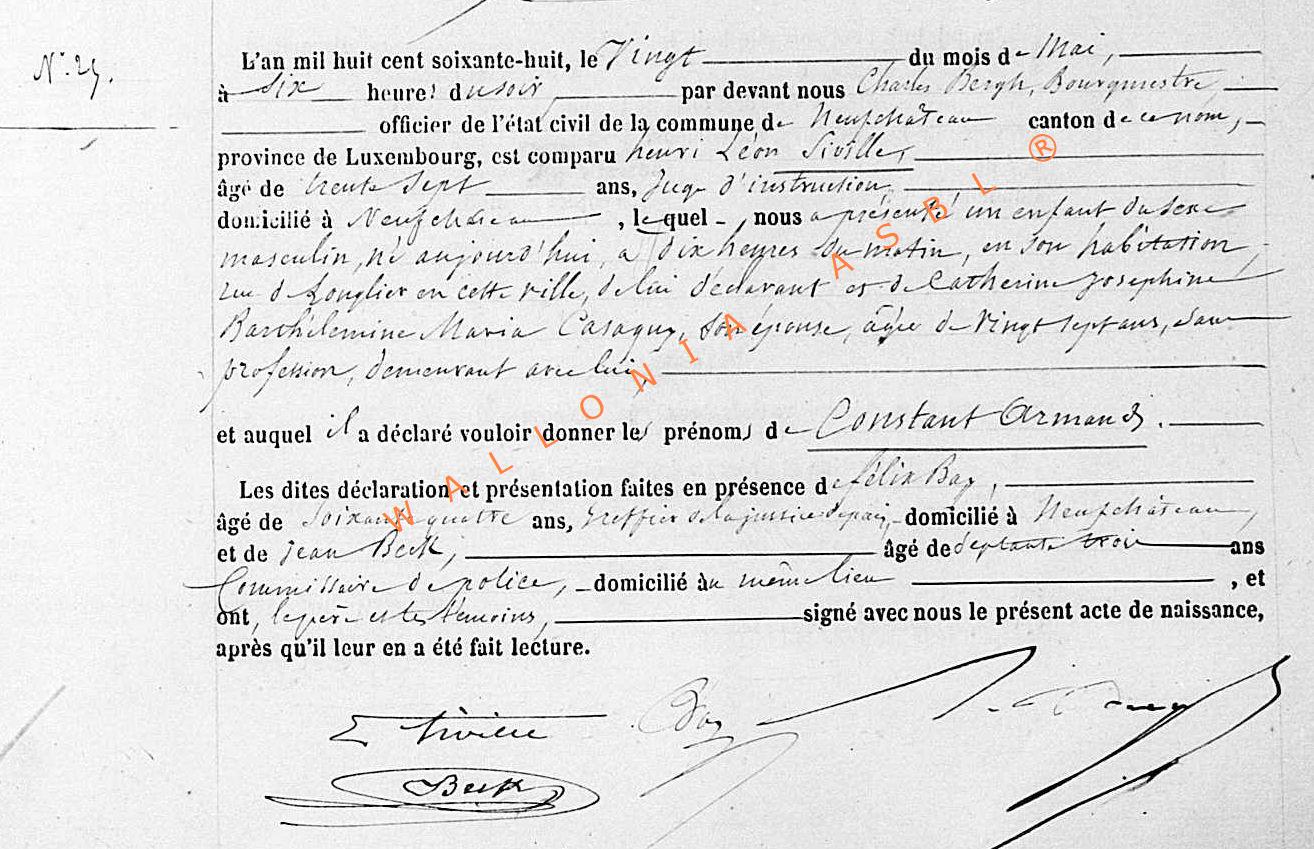 N° 25.
L'an mil huit cent soixante-huit, le Vingt du mois de Mai,
à Six heures du soir, par devant nous Charles Bergh, Bourgmestre,
officier de l'état civil de la commune de Neufchâteau canton de ce nom,
province de Luxembourg, est comparu henri Léon Siville,
âgé de trente Sept ans, Juge d'instruction,
domicilié à Neufchâteau, lequel nous a présenté un enfant du sexe
masculin, né aujourd'hui, à dix heures du matin, en son habitation,
rue de Longlier en cette ville, de lui déclarant et de Catherine Josephine
Barthélemine Maria Casaguy, son épouse, âgée de Vingt sept ans, sans
profession, demeurant avec lui,
et auquel il a déclaré vouloir donner les prénoms de Constant Armand.
Les dites déclaration et présentation faites en présence de félix Bay,
âgé de Soixante quatre ans, Greffier de la justice de paix, domicilié à Neufchâteau,
et de Jean Beck, âgé de Septante trois ans
Commissaire de police, domicilié au même lieu, et
ont, le père et les témoins, signé avec nous le présent acte de naissance,
après qu'il leur en a été fait lecture.
L Siville Bay
Beck
WALLONIA ASBL ®